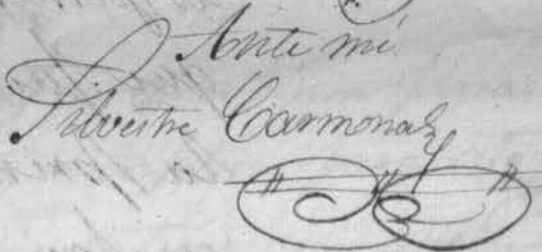 Ante mi
Silvestre Carmona